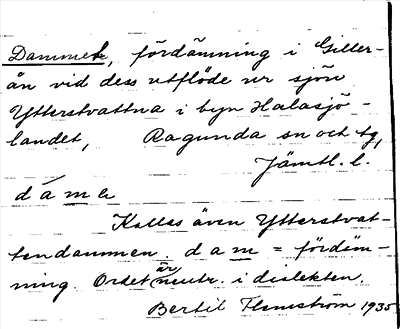 Dammet, fördämning i Giller-
ån vid dess utflöde ur sjön
Ytterstvattna i byn Halasjö-
landet, Ragunda sn och tg,
Jämtl. l.
dámɛ
Kallas även Ytterstvat-
tendammen. dam = fördäm-
ning. Ordet är neutr. i dialekten.
Bertil Flemström 1935